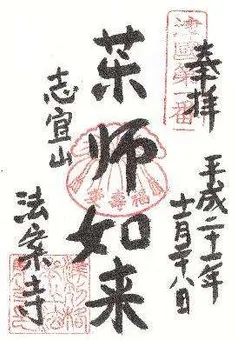 奉拝
平成二十一年
十一月二十八日
薬師如来
志宜山
法案寺